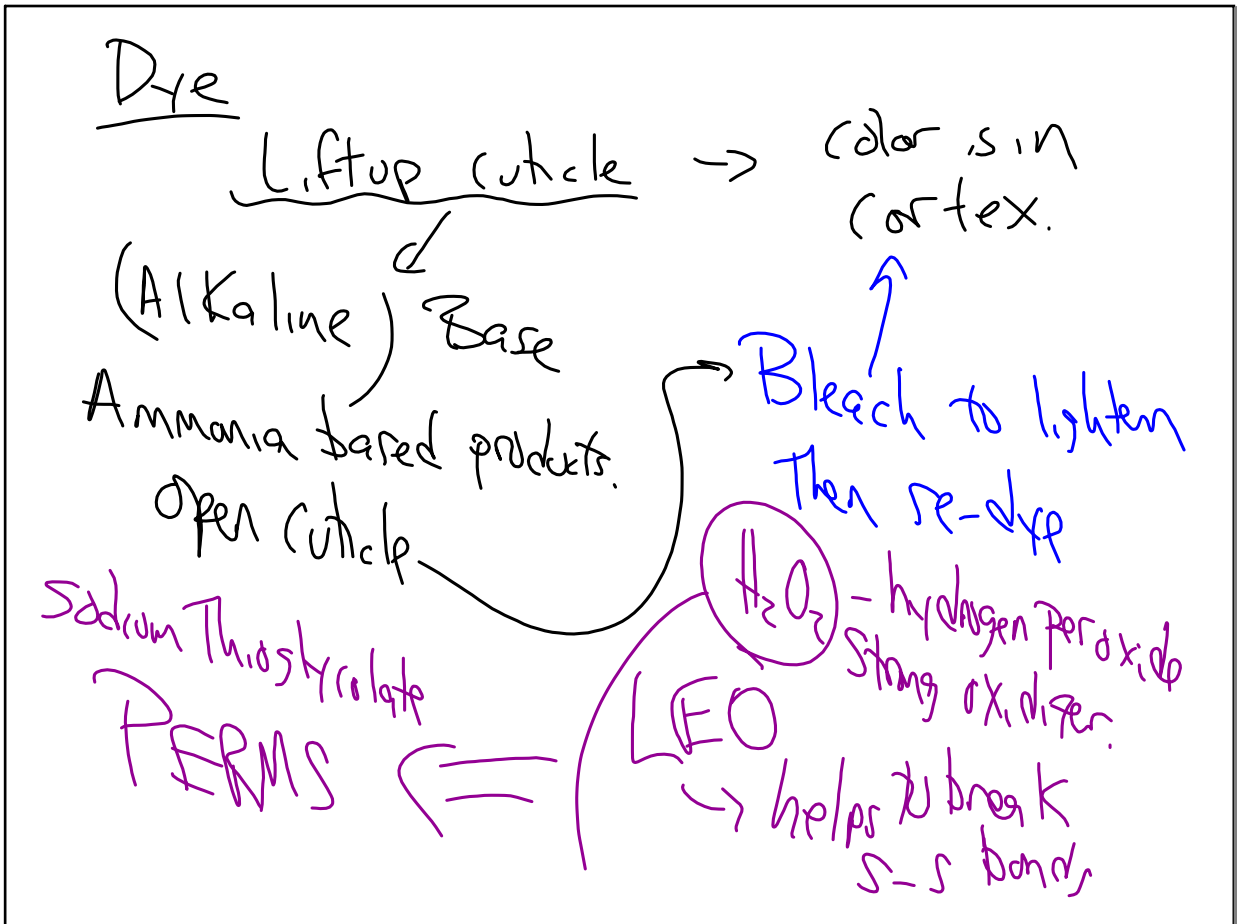 Dye
Lift up cuticle → color is in
cortex.
(Alkaline) Base
Ammonia based products.
open cuticle
Bleach to lighten
Then re-dye
H₂O₂ - hydrogen peroxide
strong oxidizer.
LEO
→ helps to break
S-S bonds
Sodium Thioglycolate
PERMS